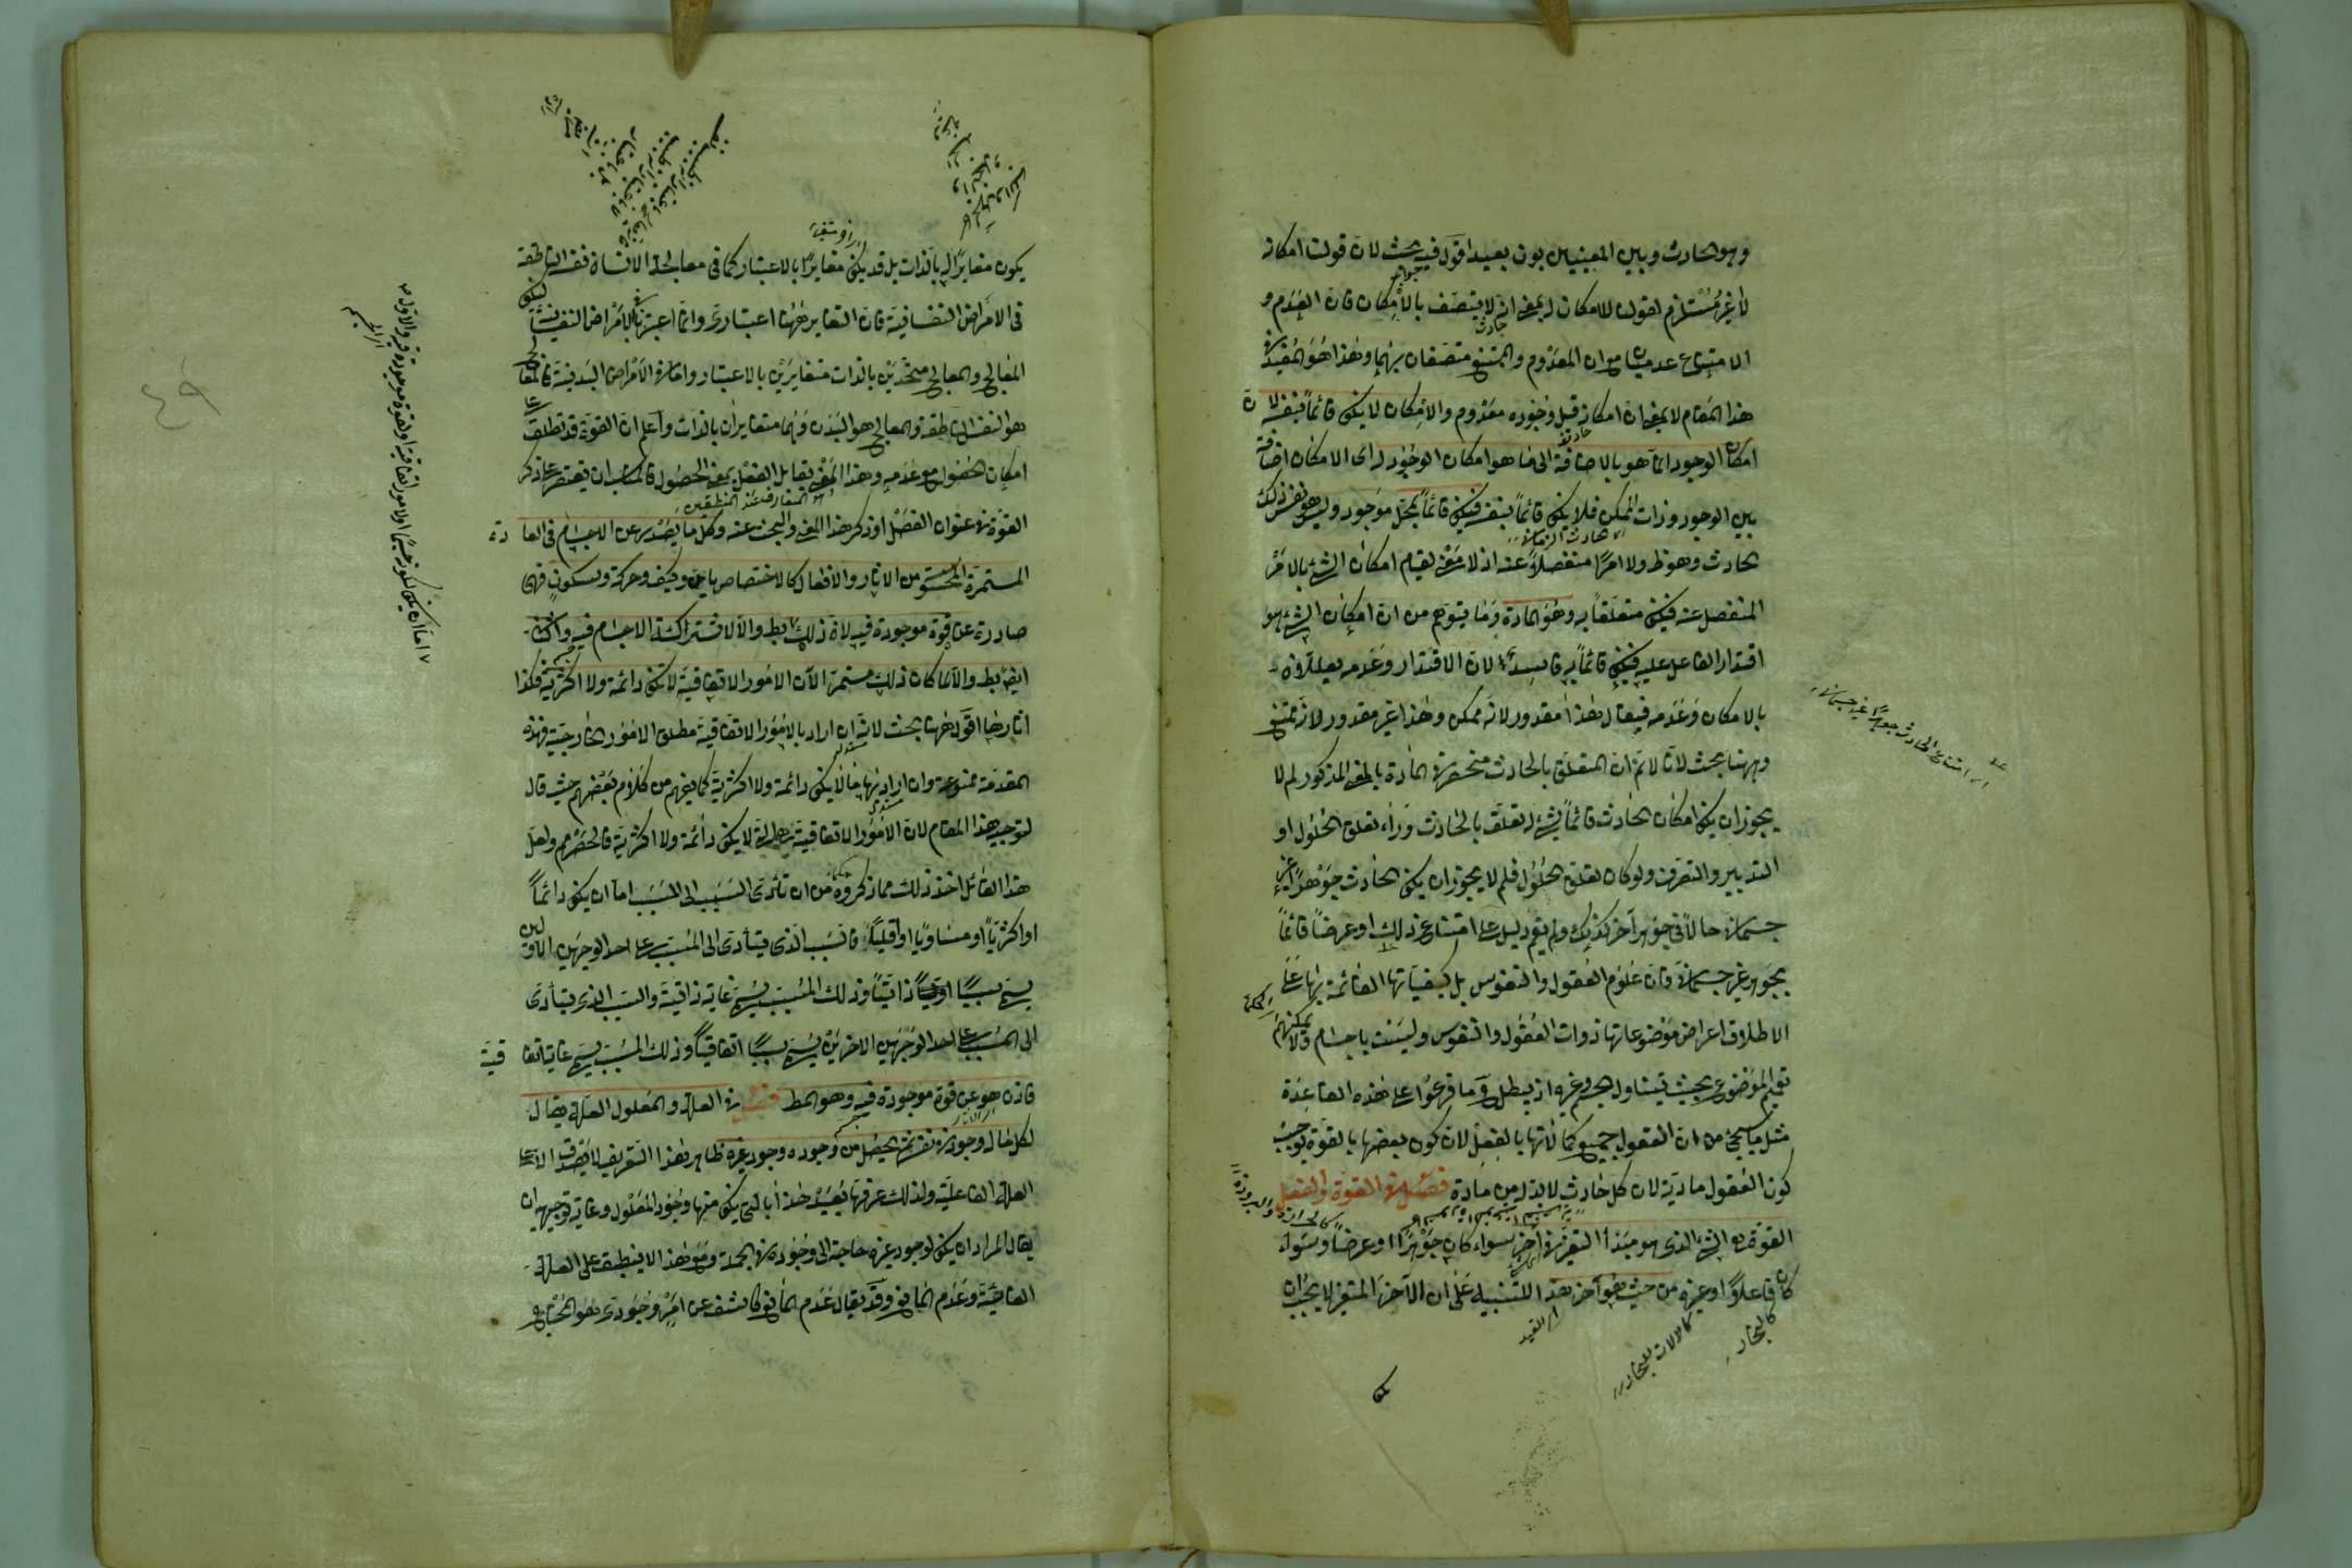 وهو الحادث وبين المعنيين بون بعيد اقول فيه بحث لان قولنا امكانه
لا غير مستلزم لقولنا لا امكان له بمعنى انه لا يتصف بالامكان فان العدم و
الامتناع عدميان مع ان المعدوم والممتنع متصفان بهما وهذا هو المفيد في
هذا المقام لا بمعنى ان امكانه قبل وجوده معدوم والامكان لا يكون قائماً بنفسه لان
امكان الوجود انما هو بالاضافة الى ما هو امكان الوجود له اى الامكان اضافة
بين الوجود وذات الممكن فلا يكون قائماً بنفسه فيكون قائماً بمحل موجود وليس هو نفس ذلك
الحادث وهو ظ ولا امرًا منفصلاً عنه اذ لا معنى لقيام امكان الشئ بالامر
المنفصل عنه فيكون متعلقاً به وهو المادة وما يتوهم من ان امكان الشئ هو
اقتدار الفاعل عليه فيكون قائماً به فاسد لان الاقتدار وعدمه يعللان
بالامكان وعدمه فيقال هذا مقدور لانه ممكن وهذا غير مقدور لانه ممتنع
وههنا بحث لانا لا نم ان المتعلق بالحادث منحصر فى المادة بالمعنى المذكور لم لا
يجوز ان يكون امكان الحادث قائماً بشئ له تعلق بالحادث وراء تعلق الحلول او
التدبير والتصرف ولو كان تعلق الحلول فلم لا يجوز ان يكون الحادث جوهرًا غير
جسمانى حالاً فى جوهر آخر كذلك ولم يقم دليل على امتناع ذلك او عرضاً قائماً
بجوهر غير جسمانى فان علوم العقول والنفوس بل كيفياتها القائمة بها على
الاطلاق اعراض موضوعاتها ذوات العقول والنفوس وليست باجسام ولا يمكنهم
تعميم الموضوع بحيث يتناول الجسم وغيره اذ يبطل ح ما فرعوا على هذه القاعدة
مثل ما سيجئ من ان العقول جميع كمالاتها بالفعل لان كون بعضها بالقوة يوجب
كون العقول مادية لان كل حادث لا بد له من مادة فصل فى القوة والفعل
القوة هو الشئ الذى هو مبدأ التغير فى آخر سواء كان جوهرًا او عرضاً وسواء
كان فاعلاً او غيره من حيث هو آخر هذا للتنبيه على ان الآخر المتغير لا يجب ان
يكون مغايرًا له بالذات بل قد يكون مغايرًا بالاعتبار كما فى معالجة الانسان نفسه الناطقة
فى الامراض النفسانية فان التغاير ههنا اعتبارى وانما اعتبرنا الامراض النفسانية ليكون
المعالج والمعالج متحدين بالذات متغايرين بالاعتبار واما فى الامراض البدنية فالمعالج
هو النفس الناطقة والمعالج هو البدن وهما متغايران بالذات واعلم ان القوة قد تطلق على
امكان الحصول مع عدمه وهذا المعنى يقابل الفعل بمعنى الحصول فالمناسب ان يقتصر على ذكر
القوة فى عنوان الفصل او ذكر هذا المعنى والبحث عنه وكل ما يصدر عن الاجسام فى العادة
المستمرة المحسوسة من الاثار والافعال كالاختصاص باين وكيف وحركة وسكون فهى
صادرة عن قوة موجودة فيه لان ذلك
ايضاً بط والا لما كان ذلك مستمرًا لان الامور الاتفاقية لا تكون دائمة ولا اكثرية فكذا
آثارها اقول ههنا بحث لانه ان اراد بالامور الاتفاقية مطلق الامور الخارجية فهذه
المقدمة ممنوعة وان اراد بها ما لا يكون دائمة ولا اكثرية كما يفهم من كلام بعضهم حيث قال
لتوجيه هذا المقام لان الامور الاتفاقية هى التى لا يكون دائمة ولا اكثرية فالحصر مم ولعل
هذا القائل اخذ ذلك مما ذكروه من ان تأدى السبب الى المسبب اما ان يكون دائماً
او اكثرياً او مساوياً او اقلياً فالسبب الذى يتأدى الى المسبب على احد الوجهين الاولين
يسمى سبباً ذاتياً وذلك المسبب يسمى غاية ذاتية والسبب الذى يتأدى
الى المسبب على احد الوجهين الاخرين يسمى سبباً اتفاقياً وذلك المسبب يسمى غاية اتفاقية
فاذن هو عن قوة موجودة فيه وهو المط فصل فى العلة والمعلول العلة يقال
لكل ما له وجود فى نفسه ثم يحصل من وجوده وجود غيره ظاهر هذا التعريف لا يصدق الا على
العلة الفاعلية ولذلك عرفها بعيد هذا بالتى يكون منها وجود المعلول وغاية توجيهه ان
يقال المراد ان يكون لوجود غيره حاجة الى وجوده فى الجملة ومع هذا لا ينطبق على العلة
الغائية وعدم المانع وقد يقال عدم المانع كاشف عن امر وجودى هو المحتاج
اى القيد
كالنجار
٤٩